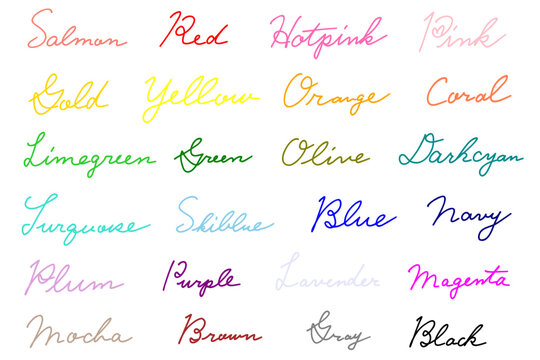 Salmon Red Hotpink Pink
Gold Yellow Orange Coral
Limegreen Green Olive Darkcyan
Turquoise Skiblue Blue Navy
Plum Purple Lavender Magenta
Mocha Brown Gray Black